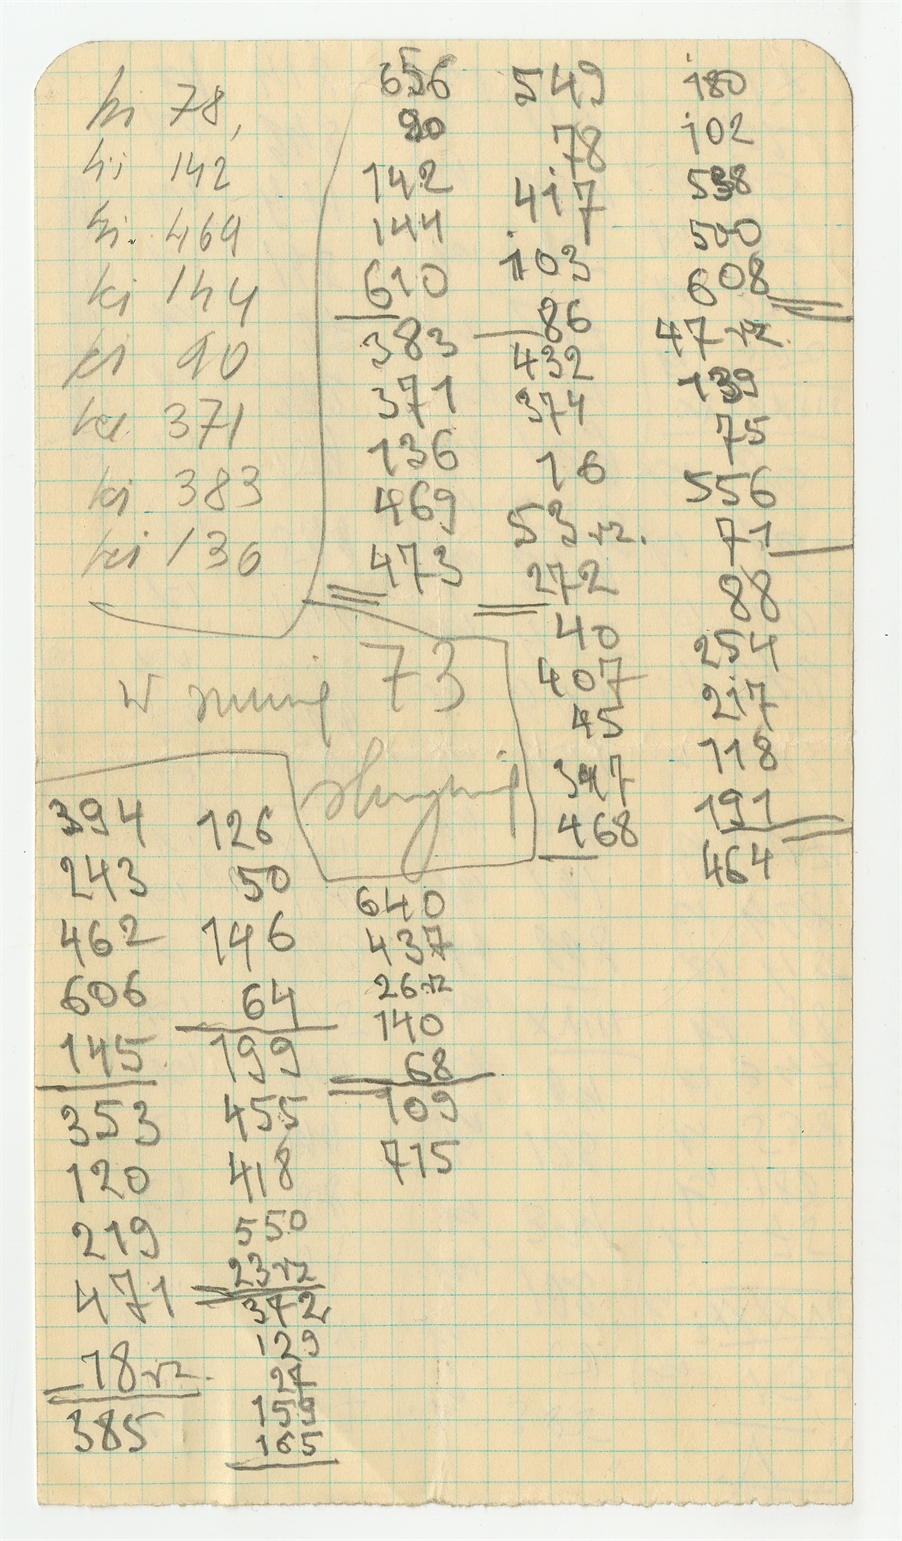 ki 78,
ki 142
ki 469
ki 144
ki 90
ki 371
ki 383
ki 136
656
90
142
144
610
383
371
136
469
473
549
78
417
103
86
432
374
16
53 rz.
272
40
407
45
347
468
180
102
538
500
608
47 rz.
139
75
556
71
88
254
217
118
191
464
w 73
394
243
462
606
145
353
120
219
471
18 rz.
385
126
50
146
64
199
455
418
550
23 rz
342
129
27
159
165
640
437
26 rz
140
68
109
715